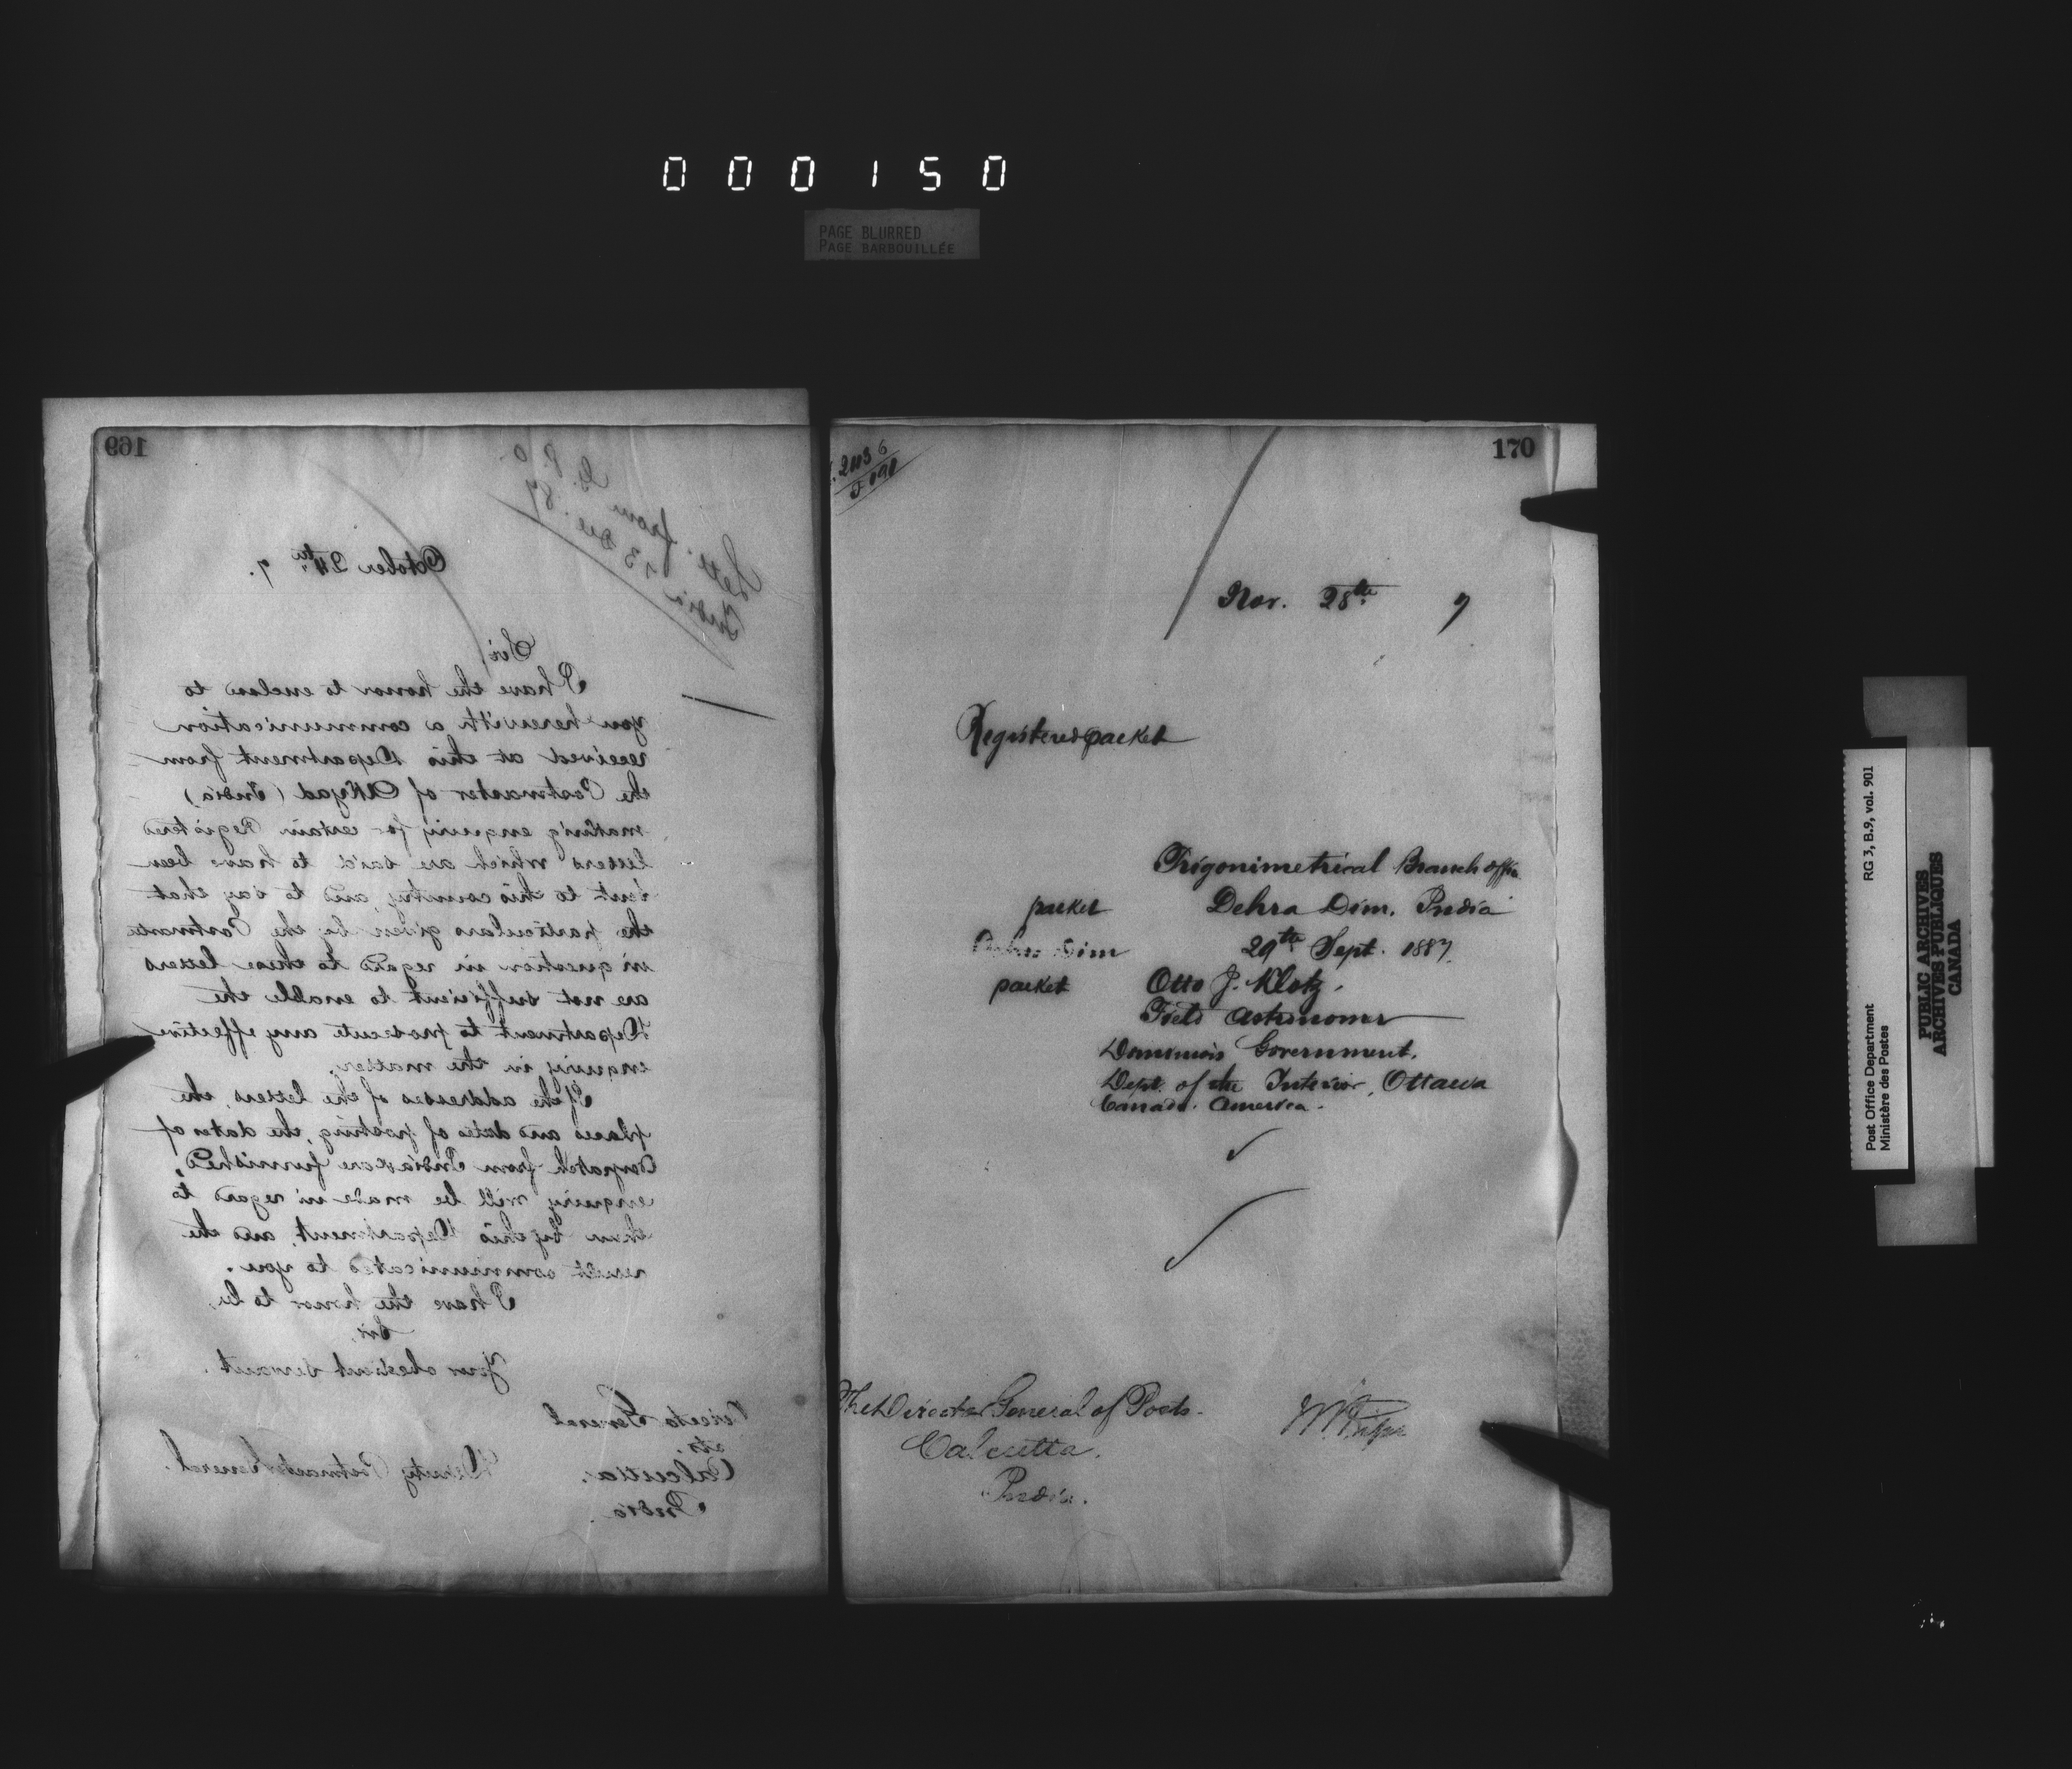 000150
PAGE BLURRED
PAGE BARBOUILLÉE
169
Lett. from G.P.O.
India 13 Dec. 87
October 24th 7.
Sir,
I have the honor to enclose to
you herewith a communication
received at this Department from
the Postmaster of Akyad (India)
making enquiry for certain Registered
letters which are said to have been
sent to this country, and to say that
the particulars given by the Postmaster
in question in regard to these letters
are not sufficient to enable the
Department to prosecute any effective
enquiry in the matter.
If the addresses of the letters, the
places and dates of posting, the dates of
Despatch from India are furnished,
enquiry will be made in regard to
them by this Department, and the
result communicated to you.
I have the honor to be,
Sir,
Your obedient servant.
General
Calcutta.
India.
Deputy Postmaster General.
170
Nov. 28th 7
Registered packet
Trigonimetrical Branch Office
packet Dehra Dun, India
Dehra Dun 29th Sept. 1887.
packet Otto J. Klotz,
Field Astronomer
Dominion Government,
Dept. of the Interior, Ottawa
Canada. America.
The Director General of Posts.
Calcutta.
India.
Post Office Department RG 3, B.9, vol. 901
Ministère des Postes
PUBLIC ARCHIVES
ARCHIVES PUBLIQUES
CANADA